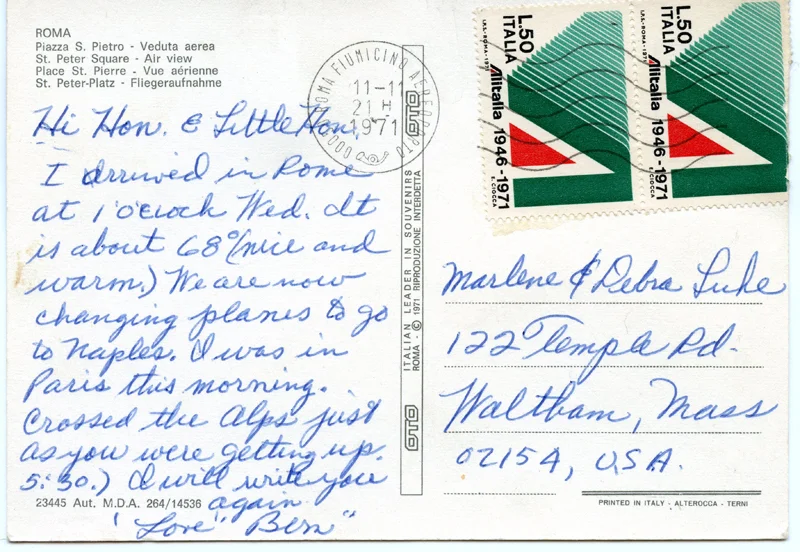 ROMA
Piazza S. Pietro - Veduta aerea
St. Peter Square - Air view
Place St. Pierre - Vue aérienne
St. Peter-Platz - Fliegeraufnahme
Hi Hon. & Little Hon,
I arrived in Rome
at 1 o'clock Wed. It
is about 68° (nice and
warm.) We are now
changing planes to go
to Naples. I was in
Paris this morning.
Crossed the Alps just
as you were getting up.
5:30.) I will write you
again
"Love" Bern"
23445 Aut. M.D.A. 264/14536
OTO
ITALIAN LEADER IN SOUVENIRS
ROMA - © 1971 RIPRODUZIONE INTERDETTA
OTO
ROMA FIUMICINO AEROPORTO
11-11
21 H
1971
00000
L.50
ITALIA
I.P.S.-ROMA-1971
Alitalia 1946-1971
E. CIOCCA
L.50
ITALIA
I.P.S.-ROMA-1971
Alitalia 1946-1971
E. CIOCCA
Marlene & Debra Luke
122 Temple Rd.
Waltham, Mass
02154, U.S.A.
PRINTED IN ITALY - ALTEROCCA - TERNI